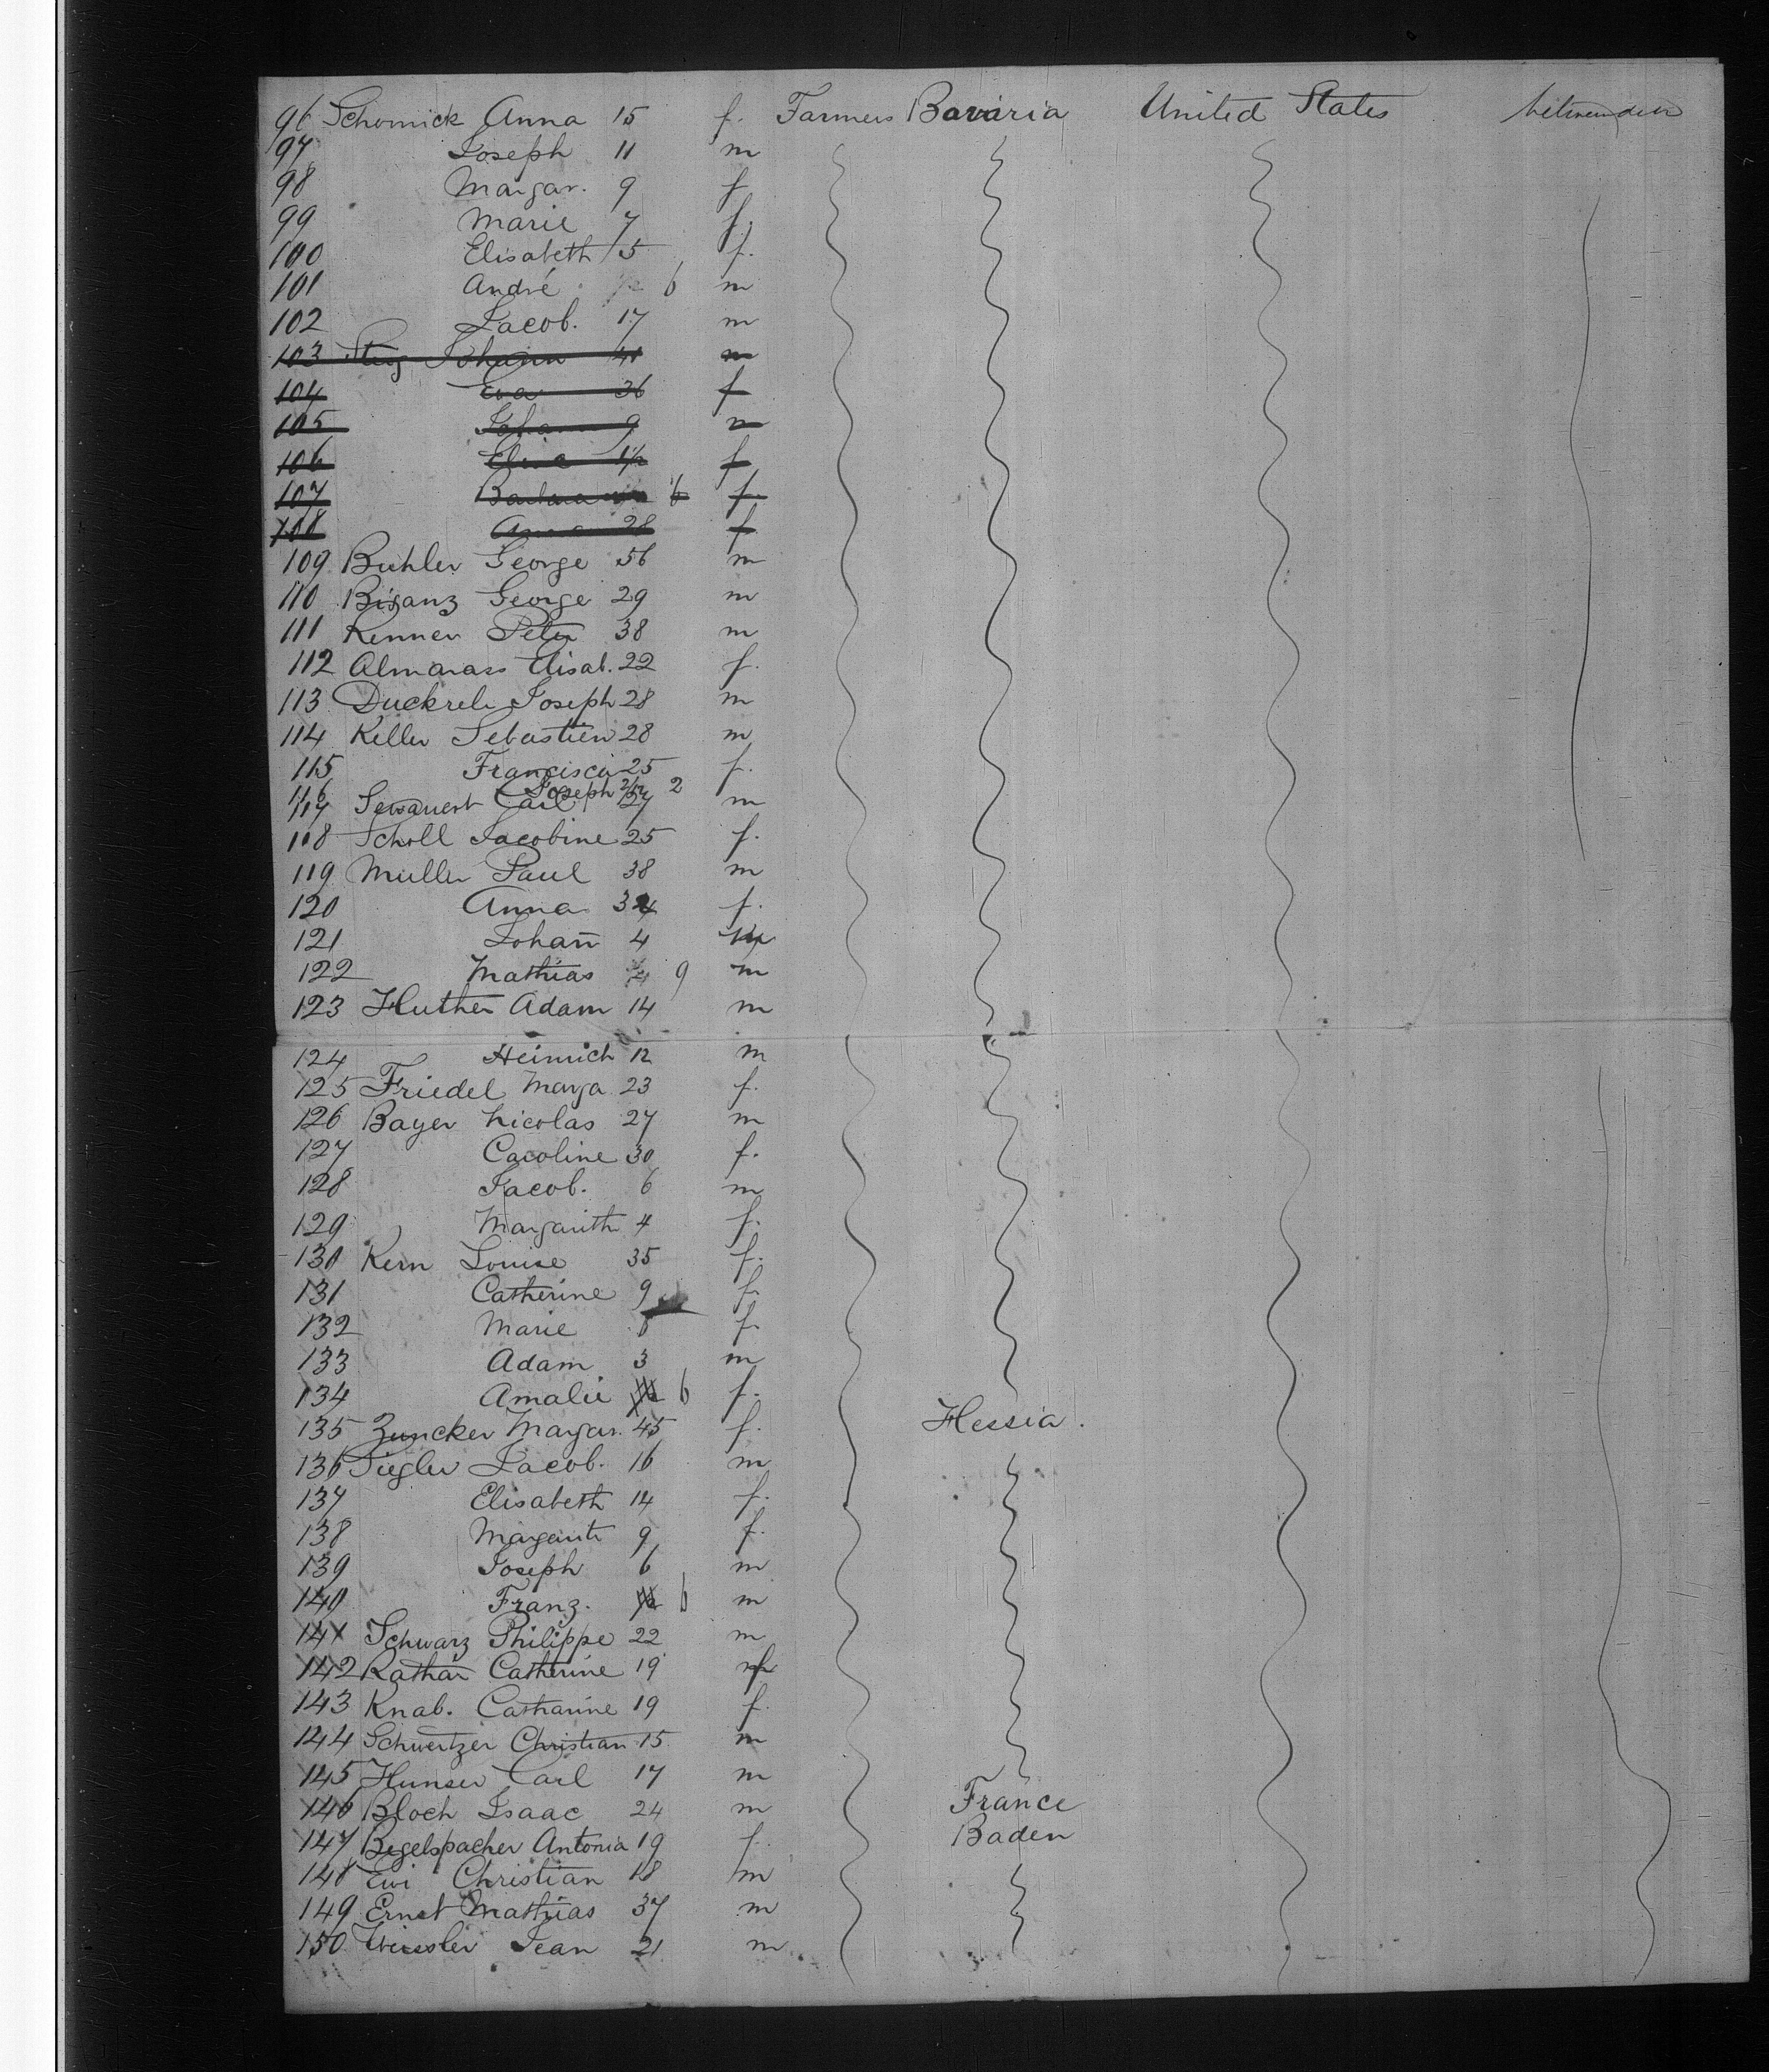 96 Schomick Anna 15 f. Farmers Bavaria United States
97 Joseph 11 m
98 Margar. 9 f
99 Marie 7 f.
100 Elisabeth 5 f.
101 André 6 m
102 Jacob. 17 m
103 Johann 41 m
104 Eva 36 f
105 Johann 9 m
106 Elise 1/2 f
107 Barbara 6 f.
108 Anna 28 f
109 Buhler George 56 m
110 Bisanz George 29 m
111 Renner Peter 38 m
112 Almarass Elisab. 22 f.
113 Joseph 28 m
114 Keller Sebastien 28 m
115 Francisca 25 f.
116 Joseph 2
117 Carl 27 m
118 Scholl Jacobine 25 f.
119 Muller Paul 38 m
120 Anna 34 f.
121 Johañ 4 m
122 Mathias 9 m
123 Huther Adam 14 m
124 Heinrich 12 m
125 Friedel Marga 23 f.
126 Bayer Nicolas 27 m
127 Caroline 30 f.
128 Jacob. 6 m
129 Margarith 4 f.
130 Kern Louise 35 f.
131 Catherine 9 f.
132 Marie f.
133 Adam 3 m
134 Amalie 6 f.
135 Zuncker Margar. 45 f. Hessia.
136 Siegler Jacob. 16 m
137 Elisabeth 14 f.
138 Margarite 9 f.
139 Joseph 6 m
140 Franz. 6 m
141 Schwarz Philippe 22 m
142 Rathar Catherine 19 f
143 Knab. Catharine 19 f.
144 Schwertzer Christian 15 m
145 Hunser Carl 17 m
146 Bloch Isaac 24 m France
147 Begelspacher Antonia 19 f. Baden
148 Ewi Christian 18 m
149 Ernst Mathias 37 m
150 Weissler Jean 21 m